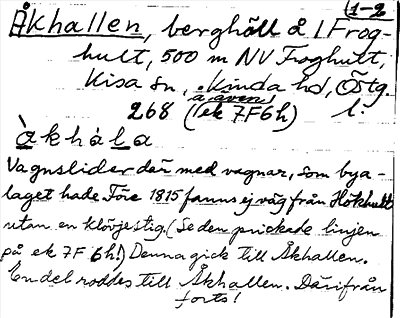 1-2
Åkhallen, berghäll å 1 Frog-
hult, 500 m NV Froghult,
Kisa sn, Kinda hd, Östg. l.
268 (ek 7F6h)
àkhála
Vagnslider där med vagnar, som bya-
laget hade. Före 1815 fanns ej väg från Hökhult
utan en klövjestig. (Se den prickade linjen
på ek 7F 6h!) Denna gick till Åkhallen.
En del roddes till Åkhallen. Därifrån
forts!